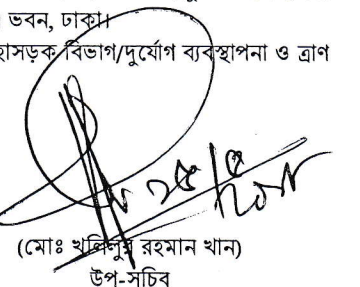 ভবন, ঢাকা।
হাসড়ক বিভাগ/দুর্যোগ ব্যবস্থাপনা ও ত্রাণ
(মোঃ খলিলুর রহমান খান)
উপ-সচিব